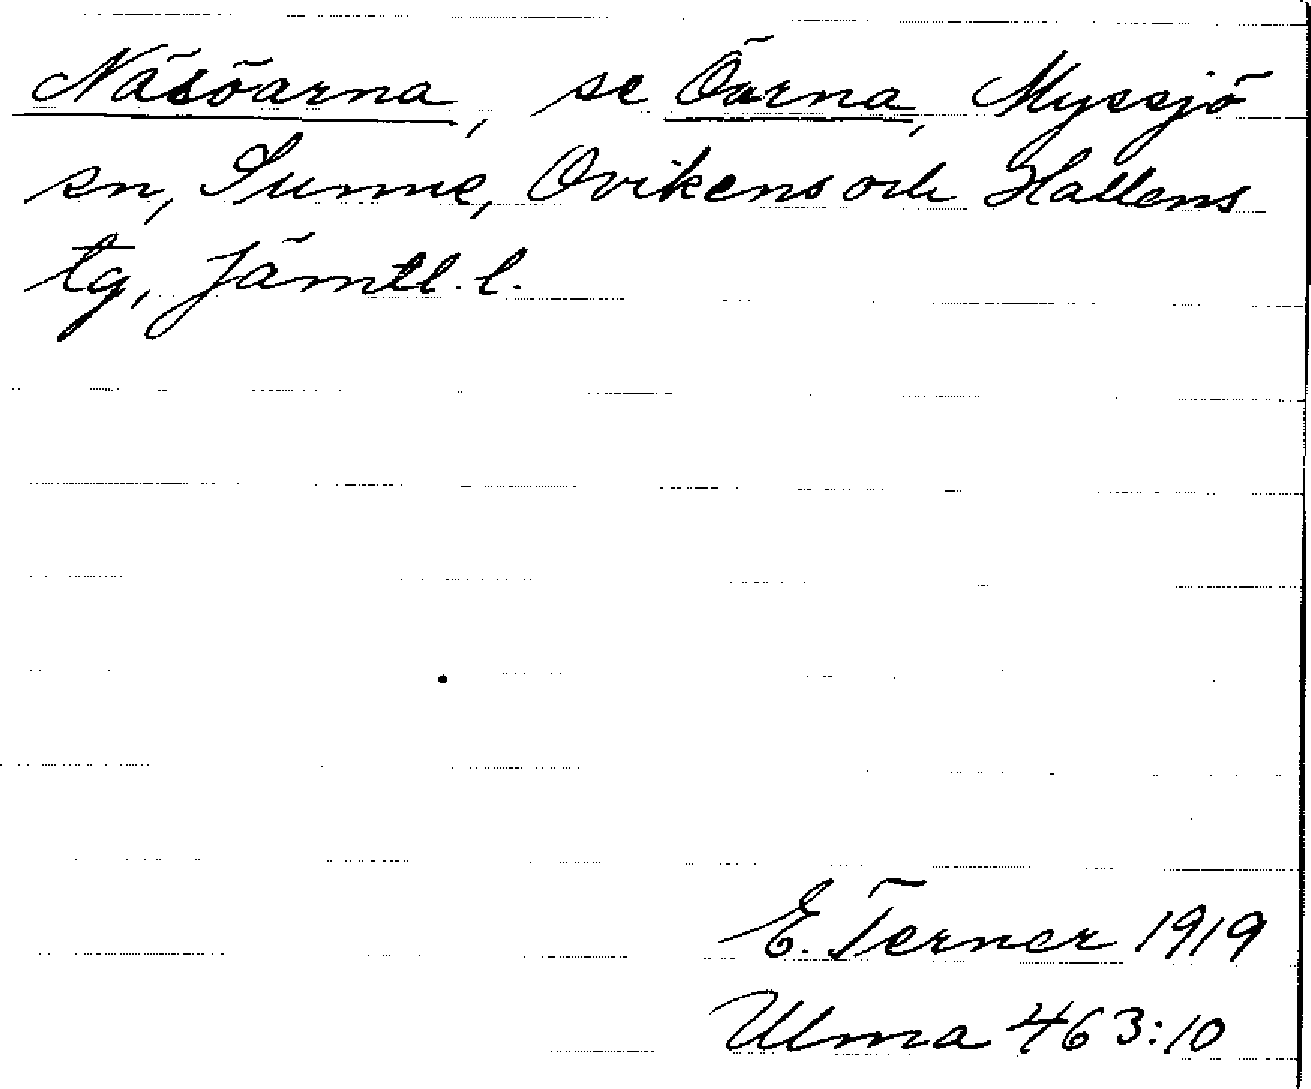 Näsöarna, se Öarna, Myssjö
sn, Sunne, Ovikens och Hallens
tg, Jämtl. l.
E. Terner 1919
Ulma 463:10